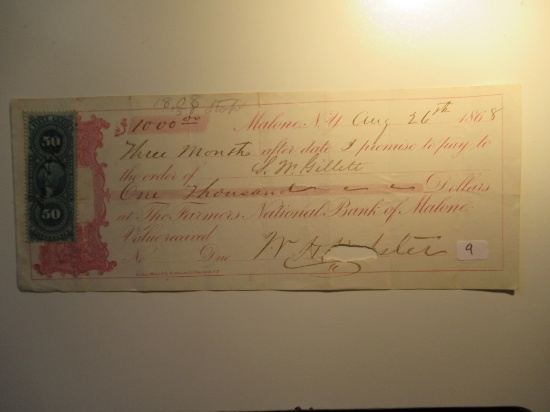 18.08
50
$1000.00 Malone, N.Y. Aug 26th 1868
Three Months after date I promise to pay to
the order of S. W. Gillett
One Thousand Dollars
at The Farmers National Bank of Malone.
Value received
No Due W. H.
50
9